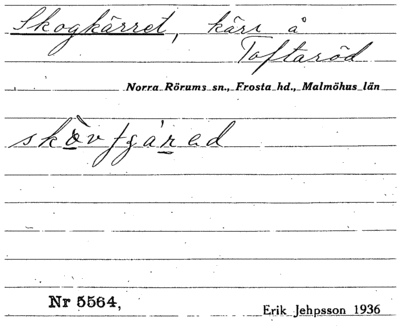 Skogkärret, kärr å
Toftaröd
Norra Rörums sn., Frosta hd., Malmöhus län
Nr 5564,
Erik Jehpsson 1936